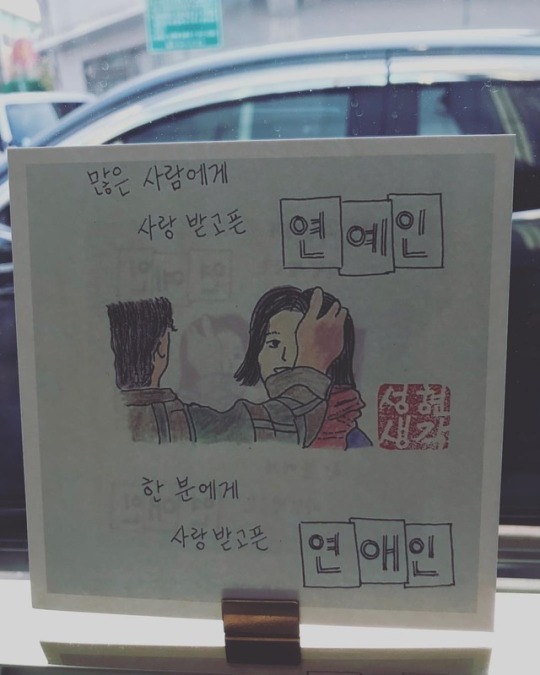 많은 사람에게
사랑 받고픈
연예인
성협
생각
한 분에게
사랑받고픈
연애인